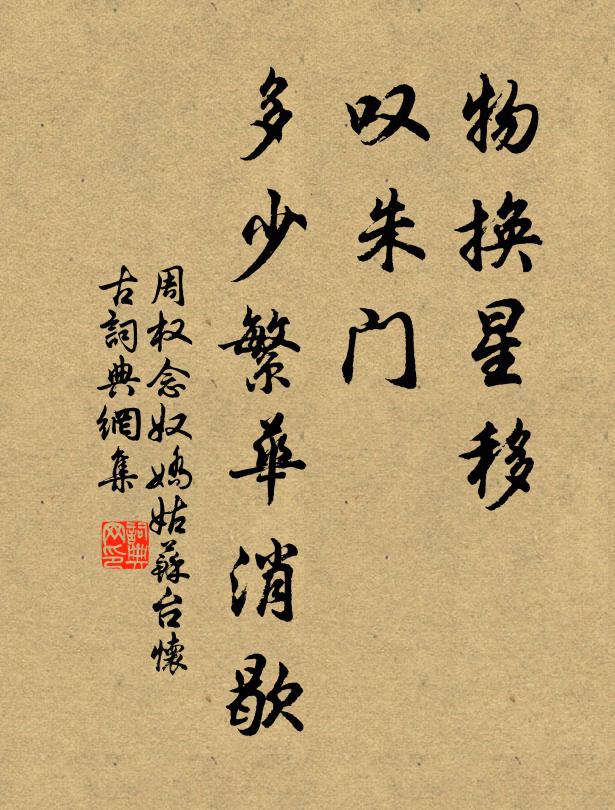 物换星移
叹朱门
多少繁華消歇
周权念奴嬌姑蘇台懷
古詞典網集
詞典网印